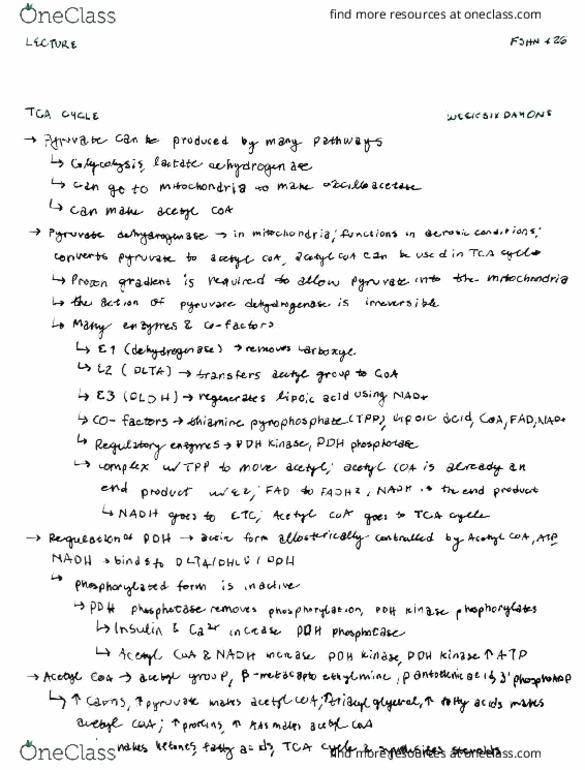 OneClass find more resources at oneclass.com
LECTURE FSHN 426
TCA CYCLE WEEK SIX DAY ONE
→ Pyruvate can be produced by many pathways
↳ Glycolysis, lactate dehydrogenase
↳ can go to mitochondria to make oxaloacetase
↳ can make acetyl CoA
→ Pyruvate dehydrogenase → in mitochondria; functions in aerobic conditions;
converts pyruvate to acetyl CoA, acetyl CoA can be used in TCA cycle
↳ Proton gradient is required to allow pyruvate into the mitochondria
↳ the action of pyruvate dehydrogenase is irreversible
↳ Many enzymes & co-factors
↳ E1 (dehydrogenase) → removes carboxyl
↳ E2 (DLTA) → transfers acetyl group to CoA
↳ E3 (DLDH) → regenerates lipoic acid using NAD+
↳ CO-factors → thiamine pyrophosphate (TPP), lipoic acid, CoA, FAD, NAD+
↳ Regulatory enzymes → PDH kinase, PDH phosphotase
↳ complex w/ TPP to move acetyl; acetyl COA is already an
end product w/ E2; FAD to FADH2, NADH is the end product
↳ NADH goes to ETC; Acetyl CoA goes to TCA cycle
→ Regulation of PDH → active form allosterically controlled by Acetyl CoA, ATP
NADH → binds to DLTA/DHLD/PDH
↳ phosphorylated form is inactive
↳ PDH phosphotase removes phosphorylation, PDH kinase phosphorylates
↳ Insulin & Ca2+ increase PDH phosphotase
↳ Acetyl CoA & NADH increase PDH kinase, PDH kinase ↑ ATP
→ Acetyl CoA → acetyl group, β-mercapto ethylmine, pantothenic acid, 3' phospho ADP
↳ ↑ carbs, ↑ pyruvate makes acetyl CoA; ↑ triacyl glycerol, ↑ fatty acids makes
acetyl CoA; ↑ proteins, ↑ AAs makes acetyl CoA
makes ketones, fatty acids, TCA cycle & steroids
OneClass find more resources at oneclass.com